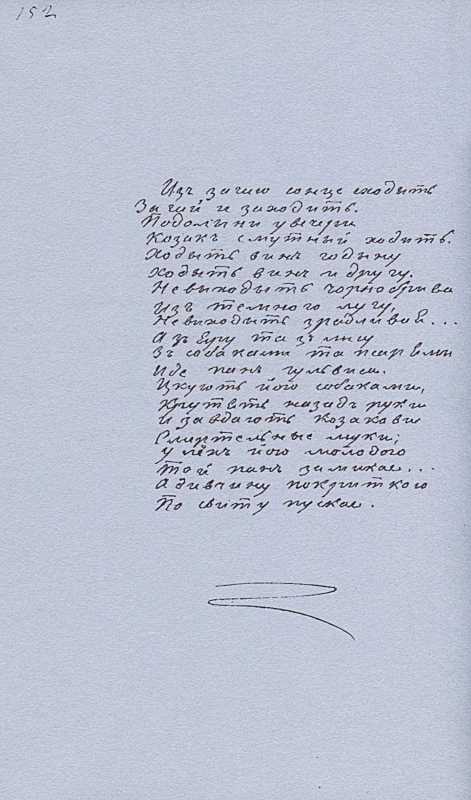 152
Изъ загаю сонце сходыть
За гай и заходить.
По долыни у вечери
Козакъ смутный ходить.
Ходыть винъ годыну
Ходыть винъ и другу.
Невыходыть чорнобрива
Изъ темного лугу,
Невиходыть зрадливая...
А зъ Яру та зъ лису
Зъ собаками та псарями
Иде панъ гульвиса.
Цкують його собаками,
Крутять назадъ руки
И завдають козакови
Смертельные муки;
у лёхъ його молодого
Той панъ замикае...
А дивчину покриткою
По свиту пускае.